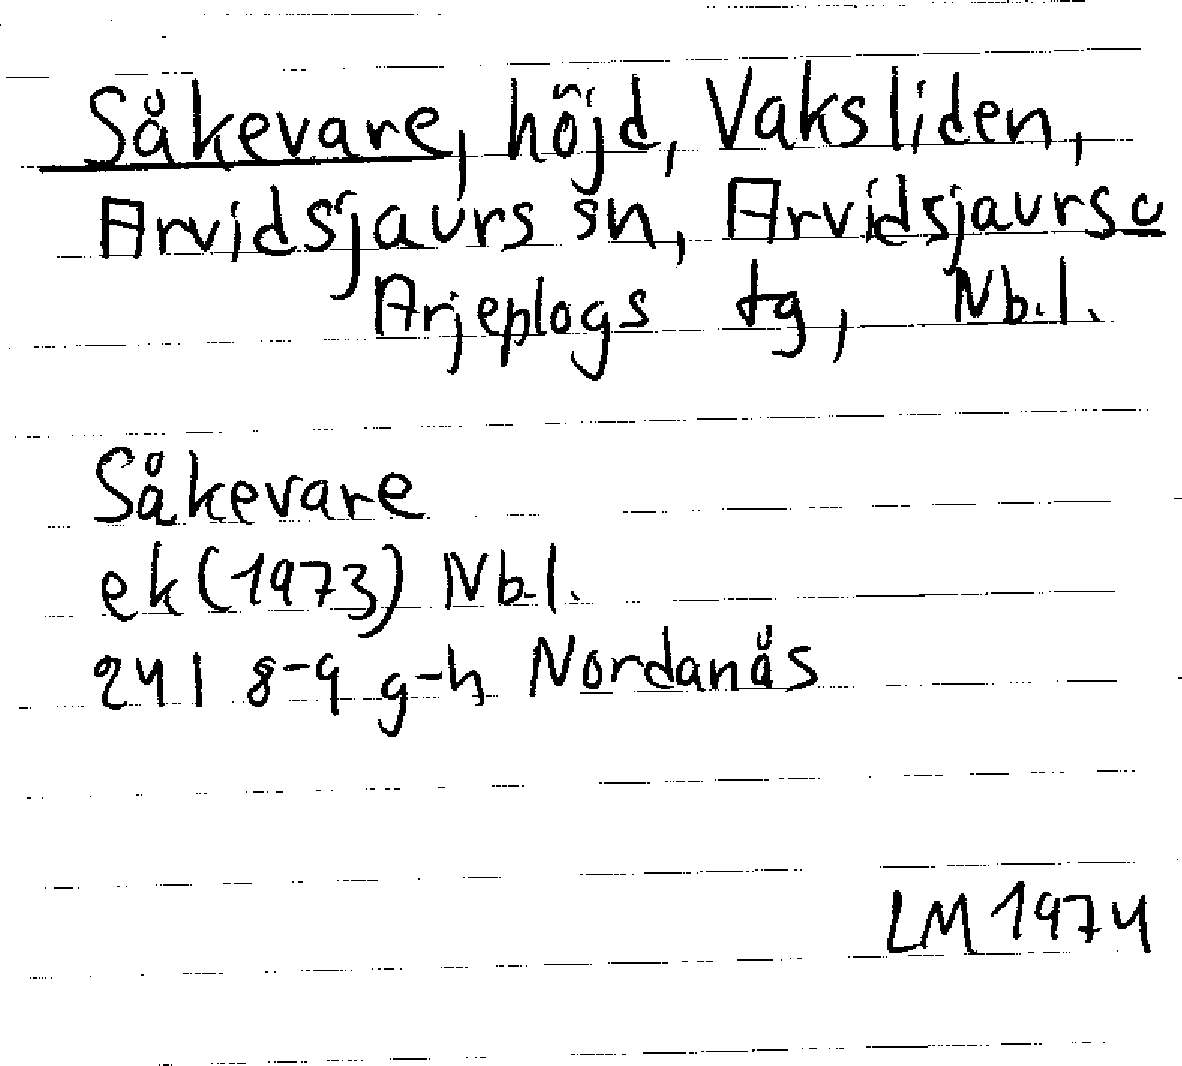 Såkevare, höjd, Vaksliden,
Arvidsjaurs sn, Arvidsjaurs o
Arjeplogs tg, Nb.l.
Såkevare
ek (1973) Nb.l.
24 I 8-9 g-h Nordanås
LM 1974